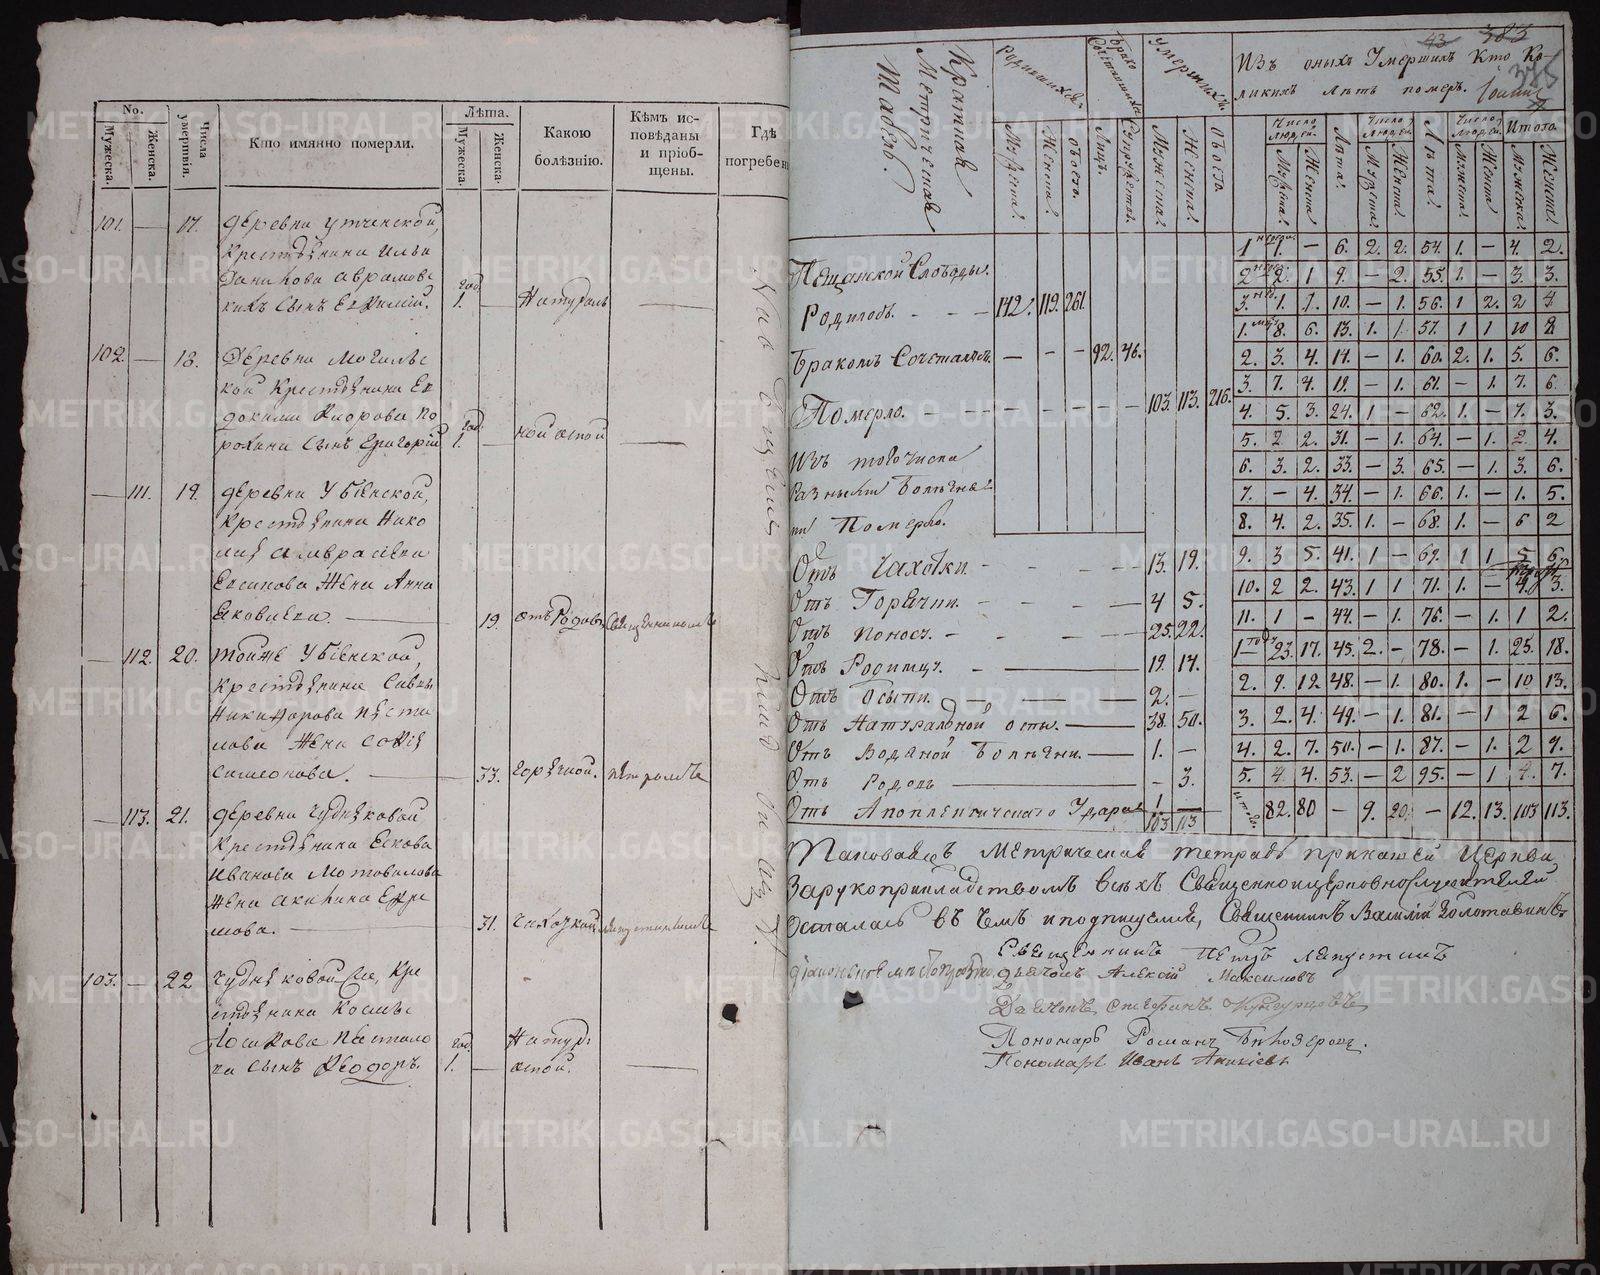 No.
Мужеска.
Женска.
Числа умертвія.
Кто имянно померли.
Лѣта.
Мужеска.
Женска.
Какою болѣзнію.
Кѣмъ ис-
повѣданы
и пріоб-
щены.
Гдѣ
погребен
101. — 17. деревни Утченской,
крестьянина Ильи
сынъ
год. 1. — Натураль —
102. — 18. Деревни
кой крестьянина Ев
сынъ Григорій
год. 1. — ной оспой —
— 111. 19. деревни Убіенской,
крестьянина Нико
лая
жена Анна
Яковлева. — 19. отъ родовъ Священникомъ
— 112. 20. тойже Убіенской,
крестьянина Савы
Никифорова
жена Софія
Симеонова. — 33. горячкой. Петромъ
— 113. 21. деревни Чудняковой
крестьянина
Иванова Мотовилова
жена Акилина Ефре
мова. — 31. чахоткой Лепустинымъ
103. — 22 Чудняковой же, кре
стьянина Космы
сынъ Ѳеодоръ.
год. 1. — Натур.
оспой. —
43 383
Краткая
Метрическая
Табель.
Родившихся
Мужеска.
Женска.
Обоего.
Брако
сочетавшихся
Лицъ.
Супружествъ.
Умершихъ
Мужеска.
Женска.
Обоего.
Изъ оныхъ Умершихъ Кто Ко-
ликихъ лѣтъ померъ.
Число людей.
Мужеска.
Женска
Лѣта.
Число людей
Мужеска.
Женска.
Лѣта.
Число людей.
Мужеска.
Женска
Итого
Мужеска.
Женска.
Пещанской Слободы.
Родилось. — — — 142. 119. 261.
Бракомъ Сочеталось. — — — 92. 46.
Померло. — — — 103. 113. 216.
Изъ того числа
разными болѣзня-
ми Померло.
Отъ Чахотки. — 13. 19.
Отъ Горячки. — 4 5.
Отъ Поносу. — 25. 22.
Отъ Родимцу. — 19. 14.
Отъ Осыпи. — 2. —
Отъ Натуральной оспы. — 38. 50.
Отъ Водяной болѣзни. — 1. —
Отъ Родовъ — — 3.
Отъ Апоплектическаго Удара 1. —
103 113
1 недѣли. 1. — 6. 2. 2. 54. 1. — 4. 2.
2 нед. 2. 1 9. — 2. 55. 1. — 3. 3.
3. нед. 1. 1. 10. — 1. 56. 1 2. 2 4
1. мѣс. 8. 6. 13. 1. 1. 57. 1 1 10 8
2. 3. 4. 14. — 1. 60. 2. 1. 5. 6.
3. 7. 4. 19. — 1. 61. — 1. 7. 6.
4. 5. 3. 24. 1 — 62. 1. — 7. 3.
5. 2 2. 31. — 1. 64. — 1. 2. 4.
6. 3. 2. 33. — 3. 65. — 1. 3. 6.
7. — 4. 34. — 1. 66. 1. — 1. 5.
8. 4. 2. 35. 1. — 68. 1. — 6 2
9. 3 5. 41. 1 — 69. 1 1 5. 6.
10. 2 2. 43. 1 1 71. 1. — 4. 3.
11. 1 — 44. — 1. 76. — 1. 1 2.
1 годъ 23. 17. 45. 2. — 78. — 1. 25. 18.
2. 9. 12 48. — 1. 80. 1. — 10 13.
3. 2. 4. 49. — 1. 81. — 1 2 6.
4. 2. 7. 50. — 1. 87. — 1. 2 9.
5. 4 4. 53. — 2 95. — 1 4. 7.
Итого. 82. 80 — 9. 20. — 12. 13. 103 113.
Таковаяжъ Метрическая тетрадь при нашей Церкви
За рукоприкладствомъ всѣхъ Священноицерковнослужителей
Осталась въ чемъ и подписуемся, Священникъ Василій Золотавинъ
Священникъ Петръ Лепустинъ
дьячокъ Алексій Максимовъ
Дьячокъ Стефанъ Кунгурцовъ
Пономарь Романъ Бѣлозеровъ.
Пономарь Иванъ Аникіевъ
METRIKI.GASO-URAL.RU